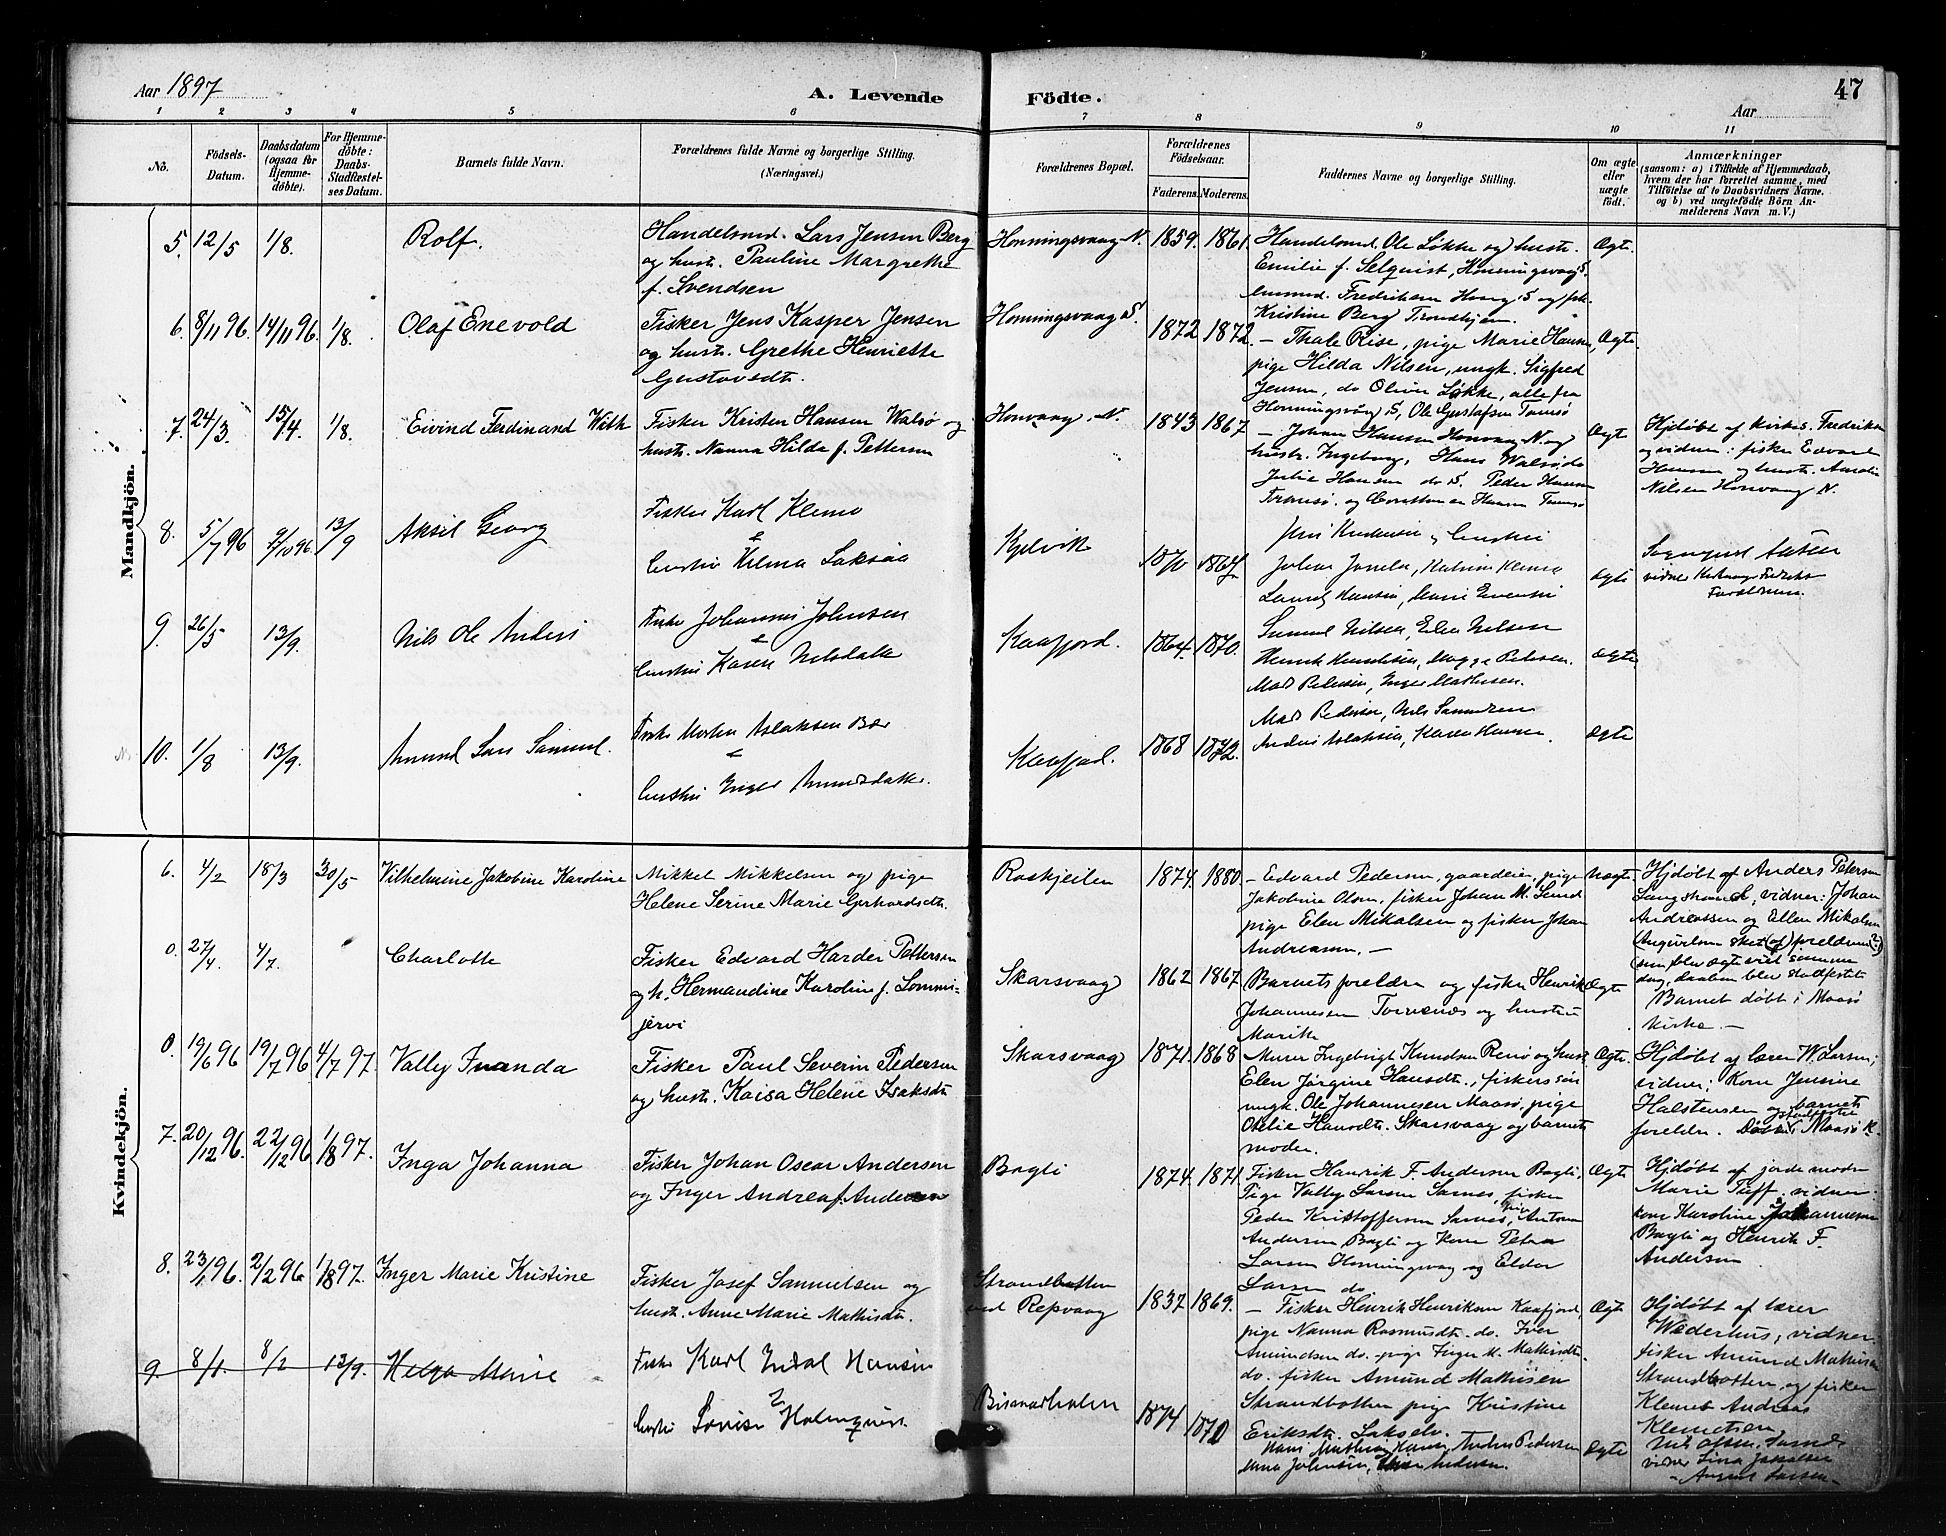 Aar 1897
A. Levende
Födte.
Aar
47
1 2 3 4 5 6 7 8 9 10 11
No. Födsels-Datum. Daabsdatum (ogsaa for Hjemme-döbte). For Hjemme-döbte: Daabs-Stadfæstel-ses Datum. Barnets fulde Navn. Forældrenes fulde Navne og borgerlige Stilling. (Næringsvei.) Forældrenes Bopæl. Forældrenes Födselsaar. Faderens. Moderens. Faddernes Navne og borgerlige Stilling. Om ægte eller uægte födt. Anmærkninger (saasom: a) i Tilfælde af Hjemmedaab, hvem der har forrettet samme, med Tilföielse af to Daabsvidners Navne. og b) ved uægtefödte Börn An-melderens Navn m. V.)
Mandkjön.
5. 12/5 1/8. Rolf. Handelsmd. Lars Jensen Berg Honningsvaag N. 1859. 1861. Handelsmd. Ole Løkke og hustr. Ægte.
og hustr. Pauline Margrethe Emilie f. Selquist, Honningsvaag S.
f. Svendsen Fredriksen Honv S og
Kristine Berg Trondhjem.
6. 8/11 96. 14/11 96. 1/8. Olaf Enevold Fisker Jens Kasper Jensen Honningsvaag S. 1872 1872. – Thale Rise, pige Marie Hansen, Ægte.
og hustr. Grethe Henriette pige Hilda Nilsen, ungk. Sigfred
Gustavsdt. Jensen, do Oliver Løkke, alle fra
Honningsvåg S, Ole Gustafsen Tomsø
7. 24/3. 15/4. 1/8. Eivind Ferdinand With Fisker Kristen Hansen Walsø og Honvaag. N. 1843 1867 – Johan Hansen Honvaag N. og Ægte Hjdøbt af kirkes. Fredriksen
hustr. Nanna Hilda f. Pettersen hustr. Ingeborg, Hans Walsø do og vidner: fisker Edvard
Julie Hansen do S. Peder Hansen Hansen og hustr. Amalie
Tromsø. og Hansen Tromsø Nilsen Honvaag N.
8. 5/7 96 9/10 96. 13/9 Aksel Georg Fisker Karl Klemo Kjelvik 1870 1867 Jens Knudsen og hustru
& hustru Hilma Laksaa Johan, Katrine Klemo Ægte vidne Kirkesang Fredriks
Laurits Hansen, Marie Evensen Forældrene.
9. 26/5 13/9. Nils Ole Anders Fisker Johannes Johnsen Kaafjord. 1864. 1870. Samuel Nilsen, Elen Nilsen
& hustru Karen Nilsdatter Henrik Henriksen, Magge Pedersen. Ægte
Mads Pedersen, Inger Mathisen.
10. 1/8 13/9. Amund Lars Samuel. Fisker Morten Aslaksen Bær Kaafjord. 1868 1872. Mads Pedersen, Nils Samuelsen
& hustru Inger Amundsdatter. Anders Aslaksen, Karen Hansen. Ægte
Kvindekjön.
6. 4/2 18/3 30/5 Vilhelmine Jakobine Karoline Mikkel Mikkelsen og pige Roskjeilen 1874. 1880 – Edvard Pedersen, gaardeier, pige Uægte. Hjdøbt af Anders Petersen
Helene Serine Marie Gerhardsdt. Jakobine Olsen, fisker Johan M. Lund vidner: Johan
pige Elen Mikalsen og fisker Johan Andreassen og Ellen Mikalsen
Andreassen. – (Angivelsen sket af forældrene)
som blev ægteviet samme
dag, daaben blev stadfestet
0. 27/4 4/7. Charlotte Fisker Edvard Harder Pettersen Skarsvaag 1862 1867 Barnets forældre og fisker Henrik Ægte Barnet døbt i Maasø
og h. Hermandine Karoline f. Lommi- Johannesen Torvenæs og hustru kirke. –
jervi Marith
0. 19/6 96 19/7 96 4/7 97. Vally Fnanda Fisker Paul Severin Pedersen Skarsvaag 1871. 1868 Murer Ingebrigt Knudsen Renø og hust. Ægte. Hjdøbt af lærer W. Larsen;
og hustr. Kaisa Helene Isaksdt. Elen Jørgine Hansdt., fiskerssøn vidner: Kone Jensine
ungk. Ole Johannesen Maasø, pige Halstensen og barnets
Otelie Hansdt. Skarsvaag og barnets forældre. Stadfestet i Maasø K.
moder.
7. 20/12 96. 22/12 96 1/8 97. Inga Johanna Fisker Johan Oscar Andersen Bagli 1874. 1871. Fisker Henrik F. Andersen Bagli, Ægte Hjdøbt af jordemoder
og Inger Andrea f. Andersen Pige Vally Larsen Sarnes, fisker Marie Tuff. vidner:
Peder Kristoffersen Sarnes, Anton kone Karoline Johannesen
Andersen Bagli og Kone Petra Bagli og Henrik F.
Larsen Honningsvag og Eldor Andersen
Larsen do.
8. 23/1 96. 2/2 96 1/8 97. Inger Marie Kristine Fisker Josef Samuelsen og Strandbotten 1837 1869. – Fisker Henrik Henriksen Kaafjord, Ægte Hjdøbt af lærer
hust. Anne Marie Mathisdt. ved Repvaag pige Nanna Rasmusdt. do. Iver Wæderhus, vidner
Amundsen do. pige Inger M. Mathisdt. fisker Amund Mathisen
do. fisker Amund Mathisen Strandbotten, og fisker
Strandbotten pige Kristine Klemet Andreas
Eriksdt. Lakselv. Klemetsen,
9 8/1. 8/2 13/9. Helga Marie Fisker Karl Indal Hansen Bismarholm 1874 1870 Hans Mathias Hansen, Anders Pedersen Ægte Nils Olsen. Sarnes
& hustru Lovise Holmquist Anna Johnsen, Andersen. vidner Lina
August Larsen